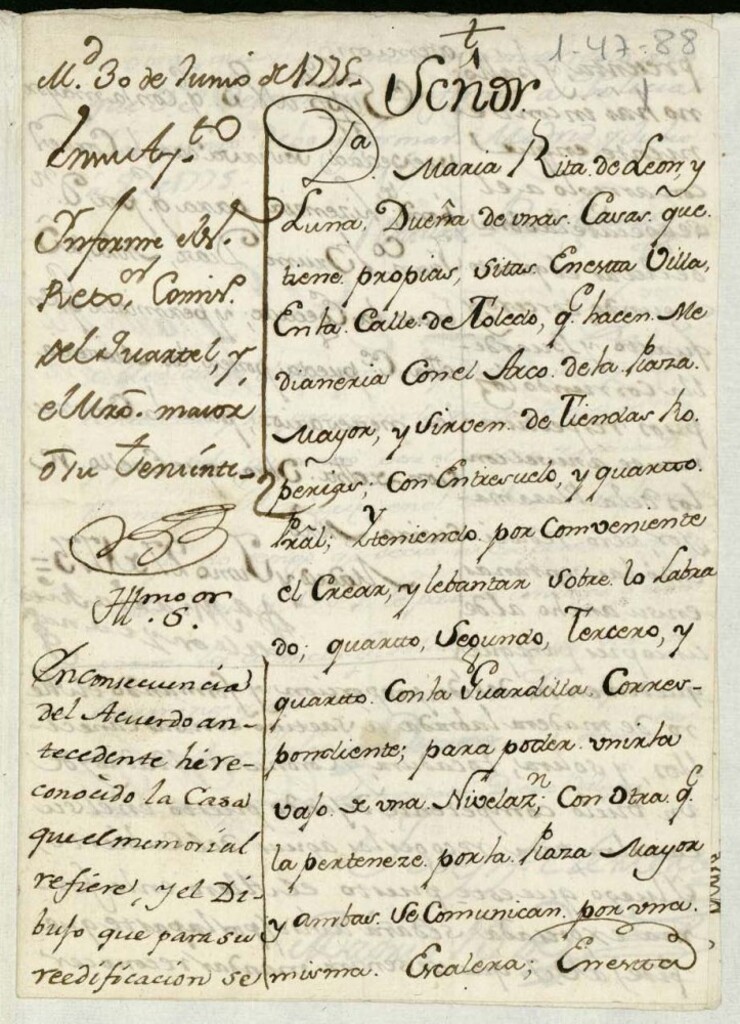 1-47-88
Md. 30 de Junio de 1775.
En su Ayto.
Informe el Sr.
Rexor. Comisº.
del Quartel, y
el Mrō. maior
ō su Teniente
Illmo or
S.
En consecuencia
del Acuerdo an-
tecedente hè re-
conocido la Casa
que el memorial
refiere, y el Di-
bujo que para su
reedificacion se
Señor
Da. Maria Rita de Leon, y
Luna. Dueña de unas Casas que
tiene propias, sitas Enesta Villa,
En la Calle de Toledo, q̄ hacen Me
dianeria Conel Arco de la Plaza
Mayor, y Sirven de Tiendas Ro
peñias; Con Entresuelo, y quartto
Pral; Y teniendo por Comveniente
el Crear, y lebantar Sobre lo Labra
do; quartto, Segundo, Tercero, y
quartto Con la Guardilla Corres-
pondiente; para poder unirla
vajo de una Nivelazn; Con otra q̄
la perteneze por la Plaza Mayor
y ambas se Comunican por una
misma Escalera; Enesta